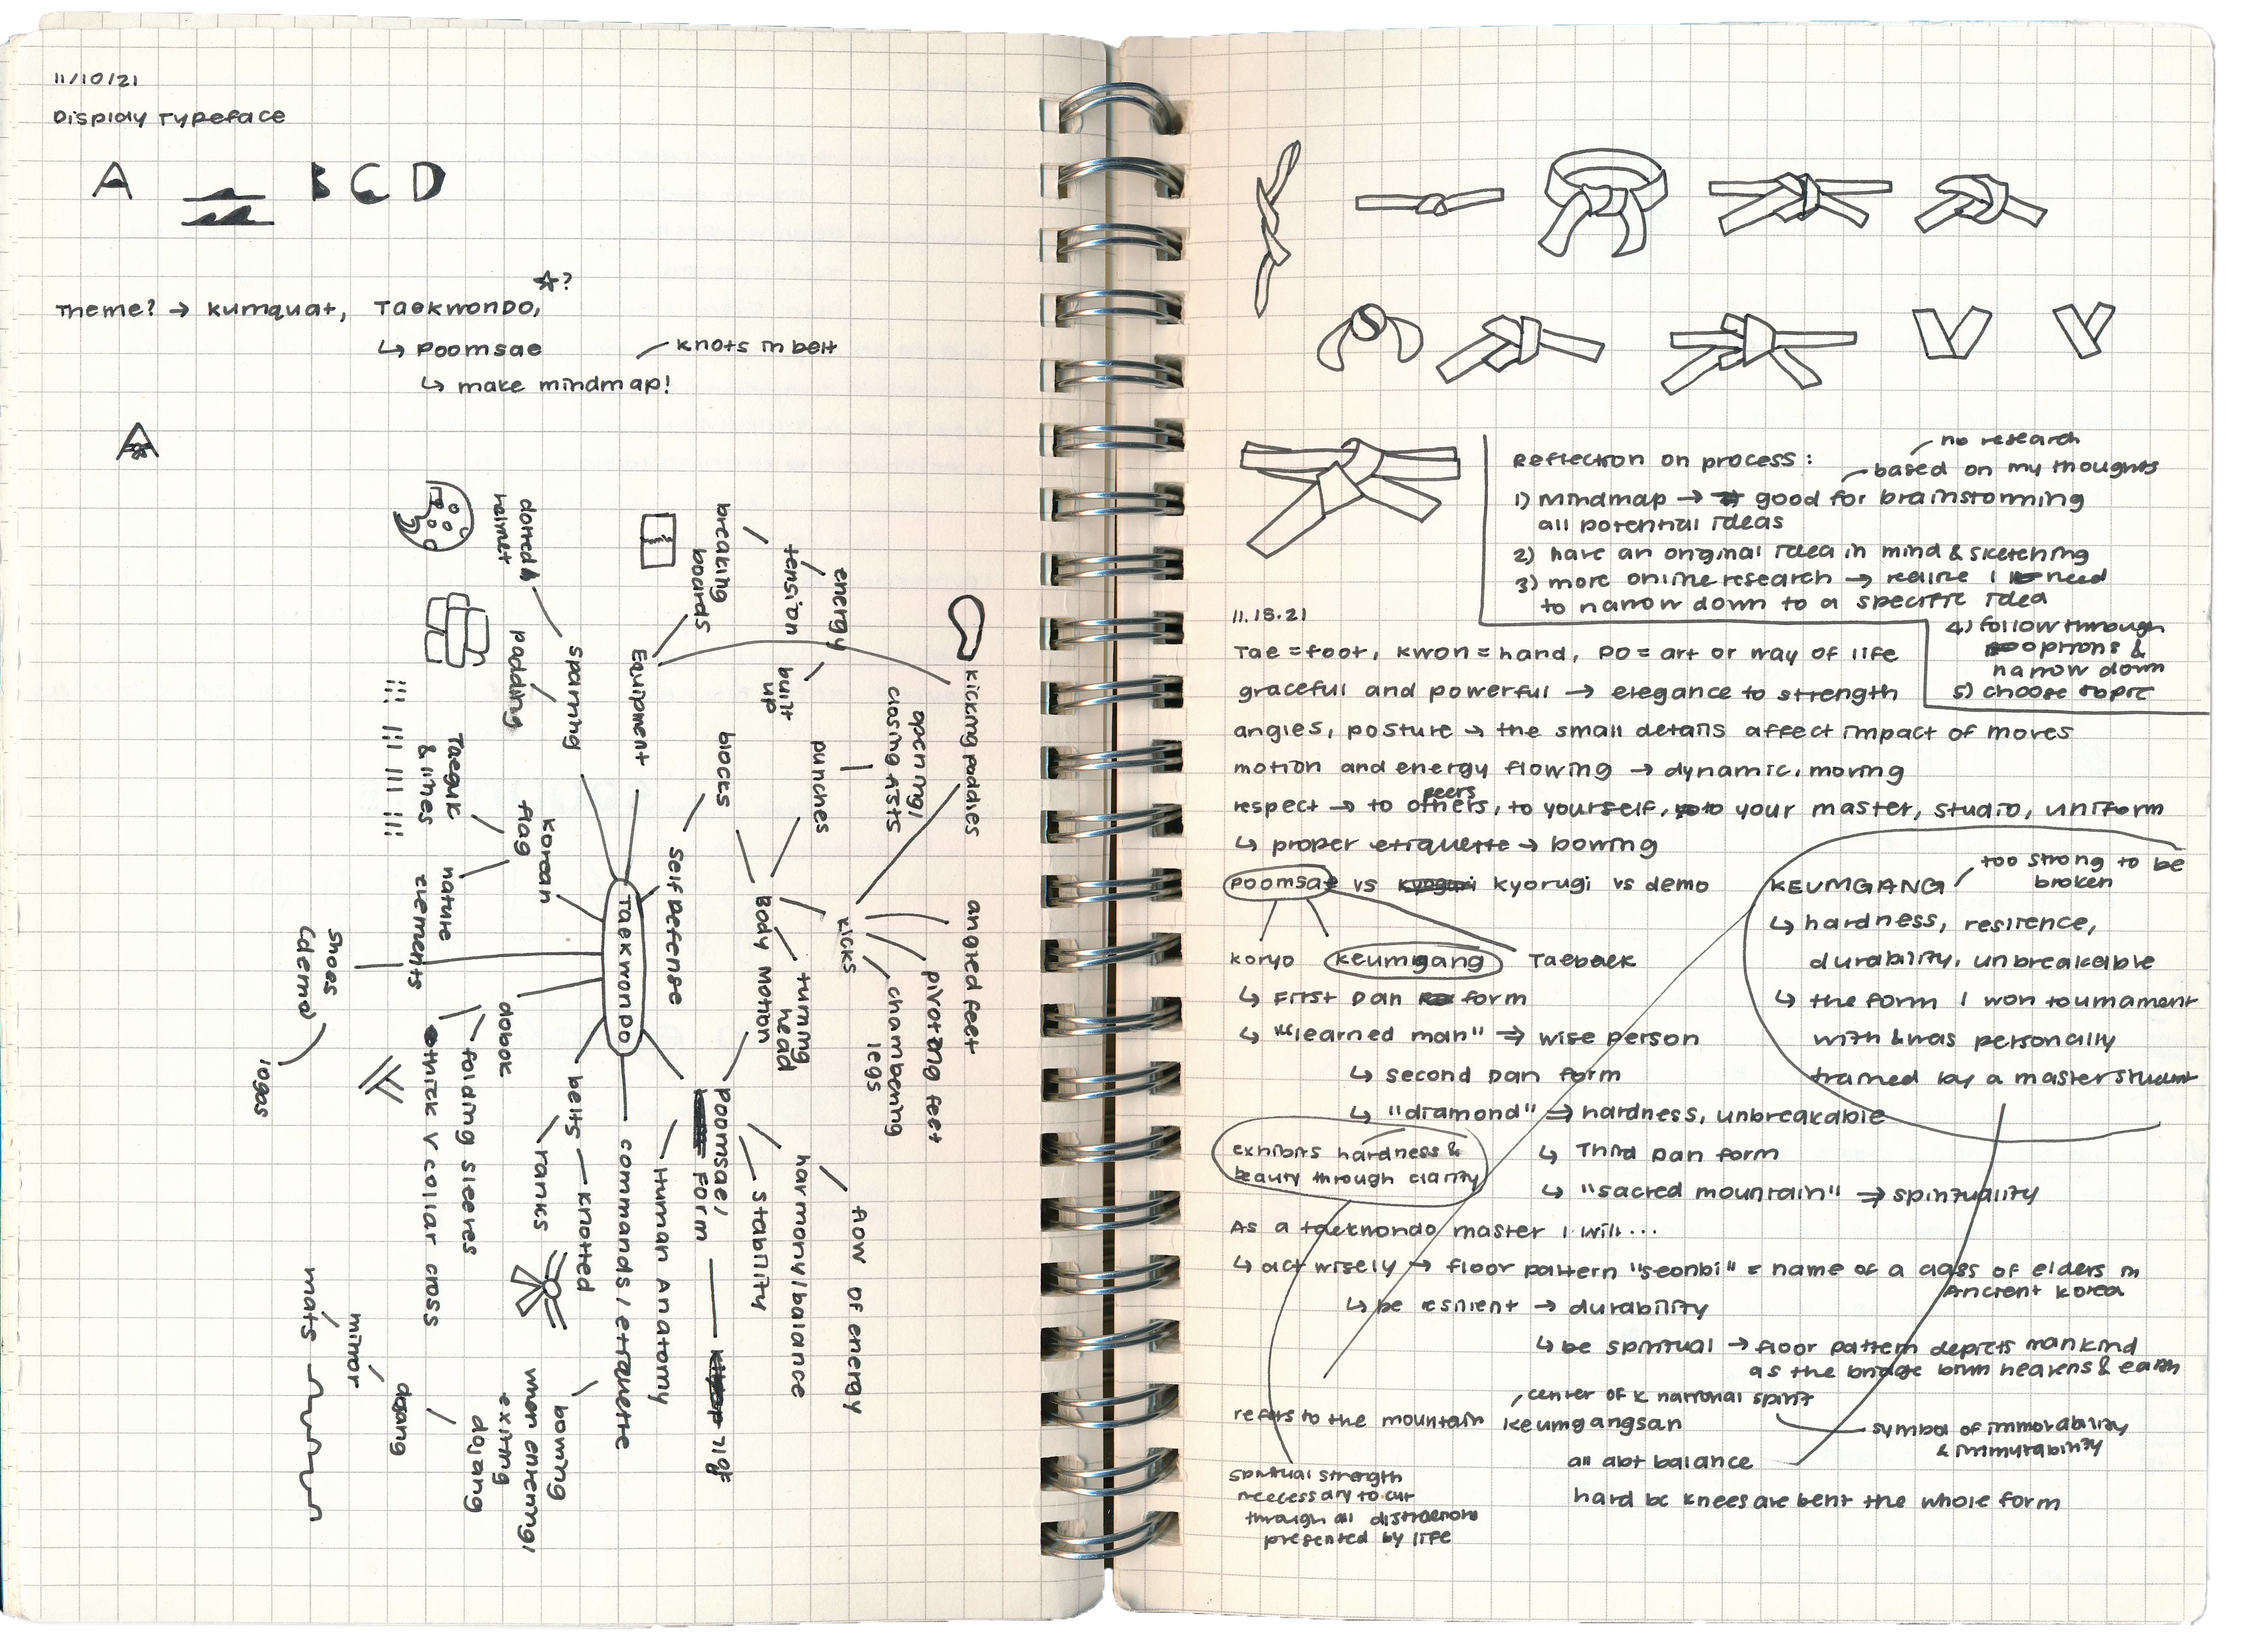 11/10/21
Display Typeface
A B C D
☆?
Theme? → kumquat, Taekwondo,
↳ Poomsae
knots in belt
↳ make mindmap!
A
dotted
helmet
padding
sparring
breaking
boards
tension
energy
built
up
Equipment
kicking paddles
opening/
closing fists
punches
blocks
self defense
Body Motion
kicks
angled feet
pivoting feet
chambering
legs
turning
head
Taeguk
& lines
Korean
flag
nature
elements
TAEKWONDO
shoes
(demo)
logos
dobok
folding sleeves
thick V collar cross
belts
knotted
ranks
Poomsae/
Form
stability
harmony/balance
flow of energy
Human Anatomy
commands/etiquette
bowing
when entering/
exiting
dojang
dojang
mirror
mats
no research
Reflection on process:
based on my thoughts
1) Mindmap → good for brainstorming
all potential ideas
2) have an original idea in mind & sketching
3) more online research → realize I need
to narrow down to a specific idea
4) follow through
options &
narrow down
5) choose topic
11.15.21
Tae = foot, kwon = hand, Do = art or way of life
graceful and powerful → elegance to strength
angles, posture → the small details affect impact of moves
motion and energy flowing → dynamic, moving
peers
respect → to others, to yourself, to your master, studio, uniform
↳ proper etiquette → bowing
Poomsae vs kyorugi vs demo
KEUMGANG
too strong to be
broken
↳ hardness, resilence,
durability, unbreakable
↳ the form I won tournament
with & was personally
trained by a master student
koryo keumgang Taebaek
↳ First Dan form
↳ "learned man" ⇒ wise person
↳ second Dan form
↳ "diamond" ⇒ hardness, unbreakable
exhibits hardness &
beauty through clarity
↳ Third Dan form
↳ "sacred mountain" ⇒ spirituality
As a taekwondo master I will...
↳ act wisely → floor pattern "seonbi" = name of a class of elders in
Ancient korea
↳ be resilient → durability
↳ be spiritual → floor pattern depicts mankind
as the bridge btwn heavens & earth
center of K national spirit
refers to the mountain keumgangsan
symbol of immovability
& immutability
all abt balance
spiritual strength
necessary to cut
through all distractions
presented by life
hard bc knees are bent the whole form